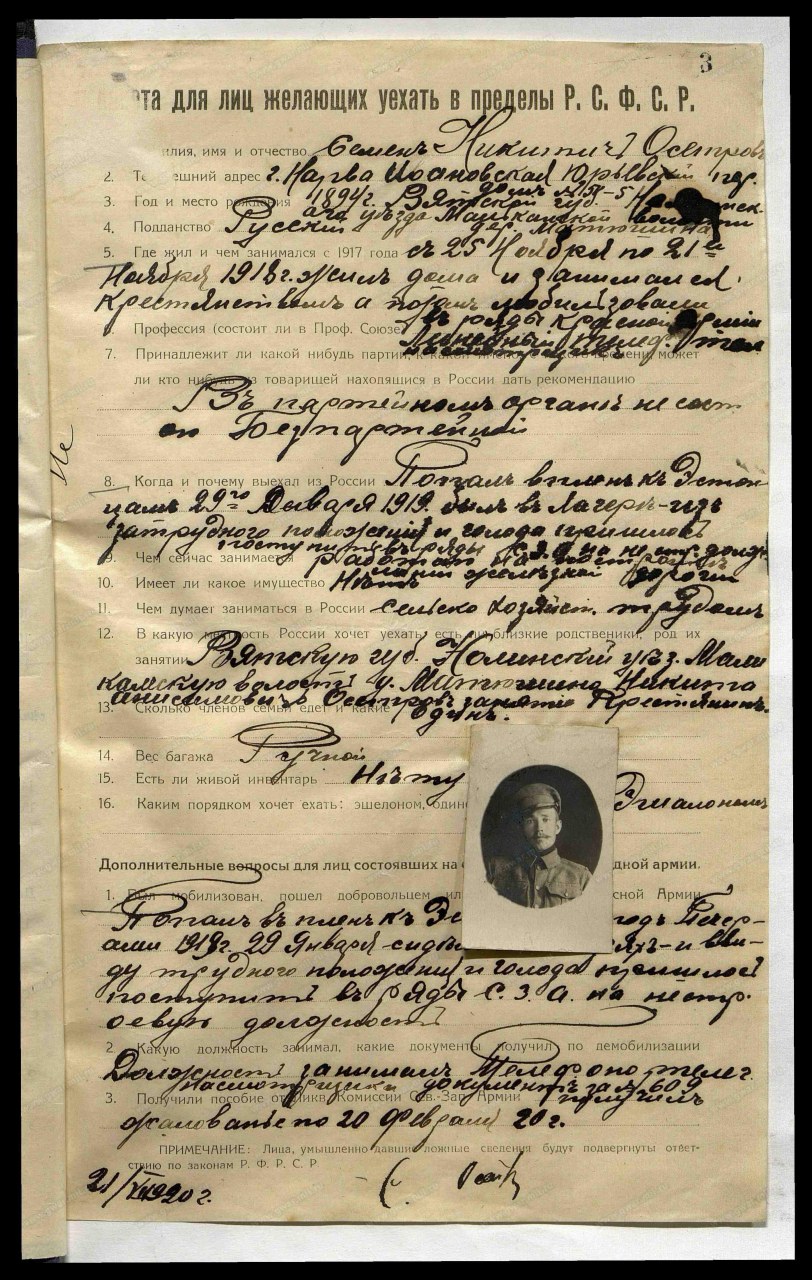 3
ета для лиц желающих уехать в пределы Р. С. Ф. С. Р.
илия, имя и отчество Семенъ Никитичъ Осетровъ
2. Те ешний адрес г. Нарва Иоановская Юрьевск пер.
домъ № 51-5
3. Год и место рождения 1894г. Вятской губ. Но инск-
аго уезда Малыканской волости
4. Подданство Русский дер. Матюшина
5. Где жил и чем занимался с 1917 года съ 25 Ноября по 21е
Ноября 1918 г. жилъ дома и занимался
крестянствомъ а потом мобилизовали
въ ряды красной армии
Профессия (состоит ли в Проф. Союзе Линейный телеф. тел
7. Принадлежит ли какой нибудь партии, к какой может
ли кто нибудь из товарищей находящиися в России дать рекомендацию
Въ партейномъ органе не сост
ою Безпартейной
Не
8. Когда и почему выехал из России Попалъ в пленъ к Эстон
цамъ 29го Января 1919. былъ в лагерь-изъ
затрудного положения и голода пришлось
поступить въ ряды С.З.А на не стр. долж
9. Чем сейчас занимается работаю на постройке
линии железной дороги
10. Имеет ли какое имущество Нетъ
11. Чем думает заниматься в России сельско хозяйст. трудомъ
12. В какую местность России хочет уехать, есть ли близкие родственики, род их
занятий Вятскую губ. Нолинский уез. Малы
канскую волость д. Матюшина Никита
Анисимовичъ Осетровъ занятие Крестьянинъ.
13. Сколько членов семьи едет и какие Одинъ.
14. Вес багажа Ручной
15. Есть ли живой инвентарь Нету
16. Каким порядком хочет ехать: эшелоном, один Эшалономъ
Дополнительные вопросы для лиц состоявших на с дной армии.
1. Был мобилизован, пошел добровольцем ил сной Армии
Попалъ въ пленъ къ Эс подъ
ами 1919г. 29 Января сиде яхъ-и вви-
ду трудного положения и голода пришлось
поступить въ ряды С. З. А. на нестр.
оевую должность
2 Какую должность занимал, какие документы получил по демобилизации
Должность занималъ Телефоно телег.
насмотрщика документъ за № 609
3. Получили пособие от Ликв. Комиссии Сев.-Зап Армии получилъ
жалованье по 20 Февраля 20 г.
ПРИМЕЧАНИЕ: Лица, умышленно давшие ложные сведения будут подвергнуты ответ-
ствию по законам Р. Ф. Р. С. Р
21/VII 1920 г.